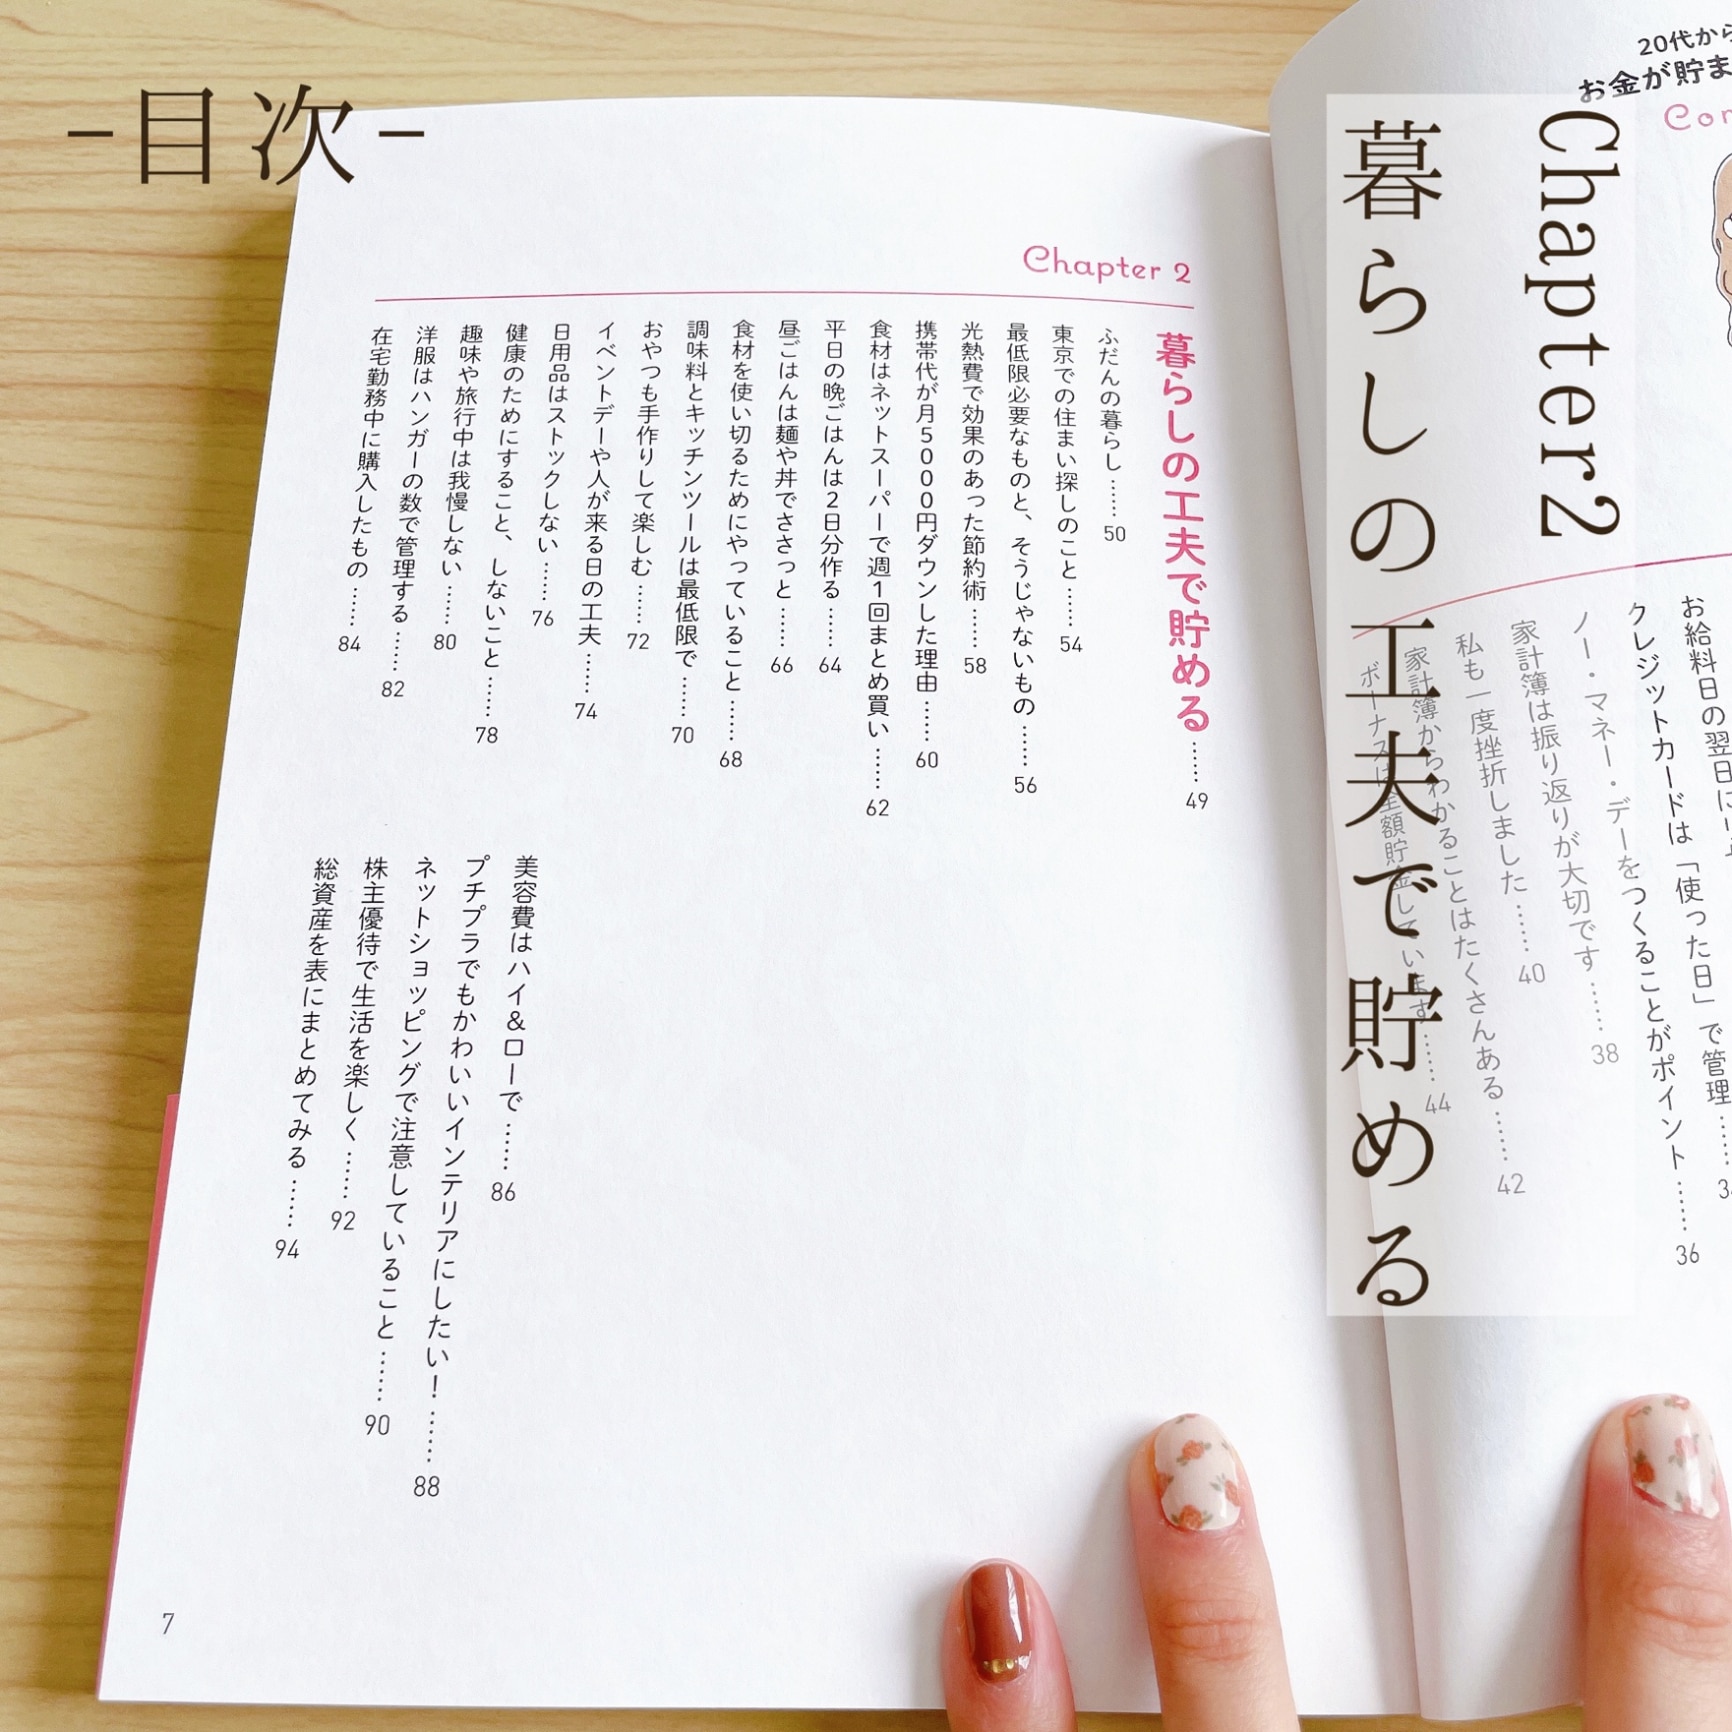 -目次-
Chapter2
暮らしの工夫で貯める
20代から
お金が貯ま
お給料日の翌日に
クレジットカードは「使った日」で管理……3
ノー・マネー・デーをつくることがポイント……36
家計簿は振り返りが大切です……38
私も一度挫折しました……40
家計簿からわかることはたくさんある……42
ボーナスは全額貯金しています……44
Chapter 2
暮らしの工夫で貯める……49
ふだんの暮らし……50
東京での住まい探しのこと……54
最低限必要なものと、そうじゃないもの……56
光熱費で効果のあった節約術……58
携帯代が月5000円ダウンした理由……60
食材はネットスーパーで週1回まとめ買い……62
平日の晩ごはんは2日分作る……64
昼ごはんは麺や丼でささっと……66
食材を使い切るためにやっていること……68
調味料とキッチンツールは最低限で……70
おやつも手作りして楽しむ……72
イベントデーや人が来る日の工夫……74
日用品はストックしない……76
健康のためにすること、しないこと……78
趣味や旅行中は我慢しない……80
洋服はハンガーの数で管理する……82
在宅勤務中に購入したもの……84
美容費はハイ&ローで……86
プチプラでもかわいいインテリアにしたい！……88
ネットショッピングで注意していること……90
株主優待で生活を楽しく……92
総資産を表にまとめてみる……94
7